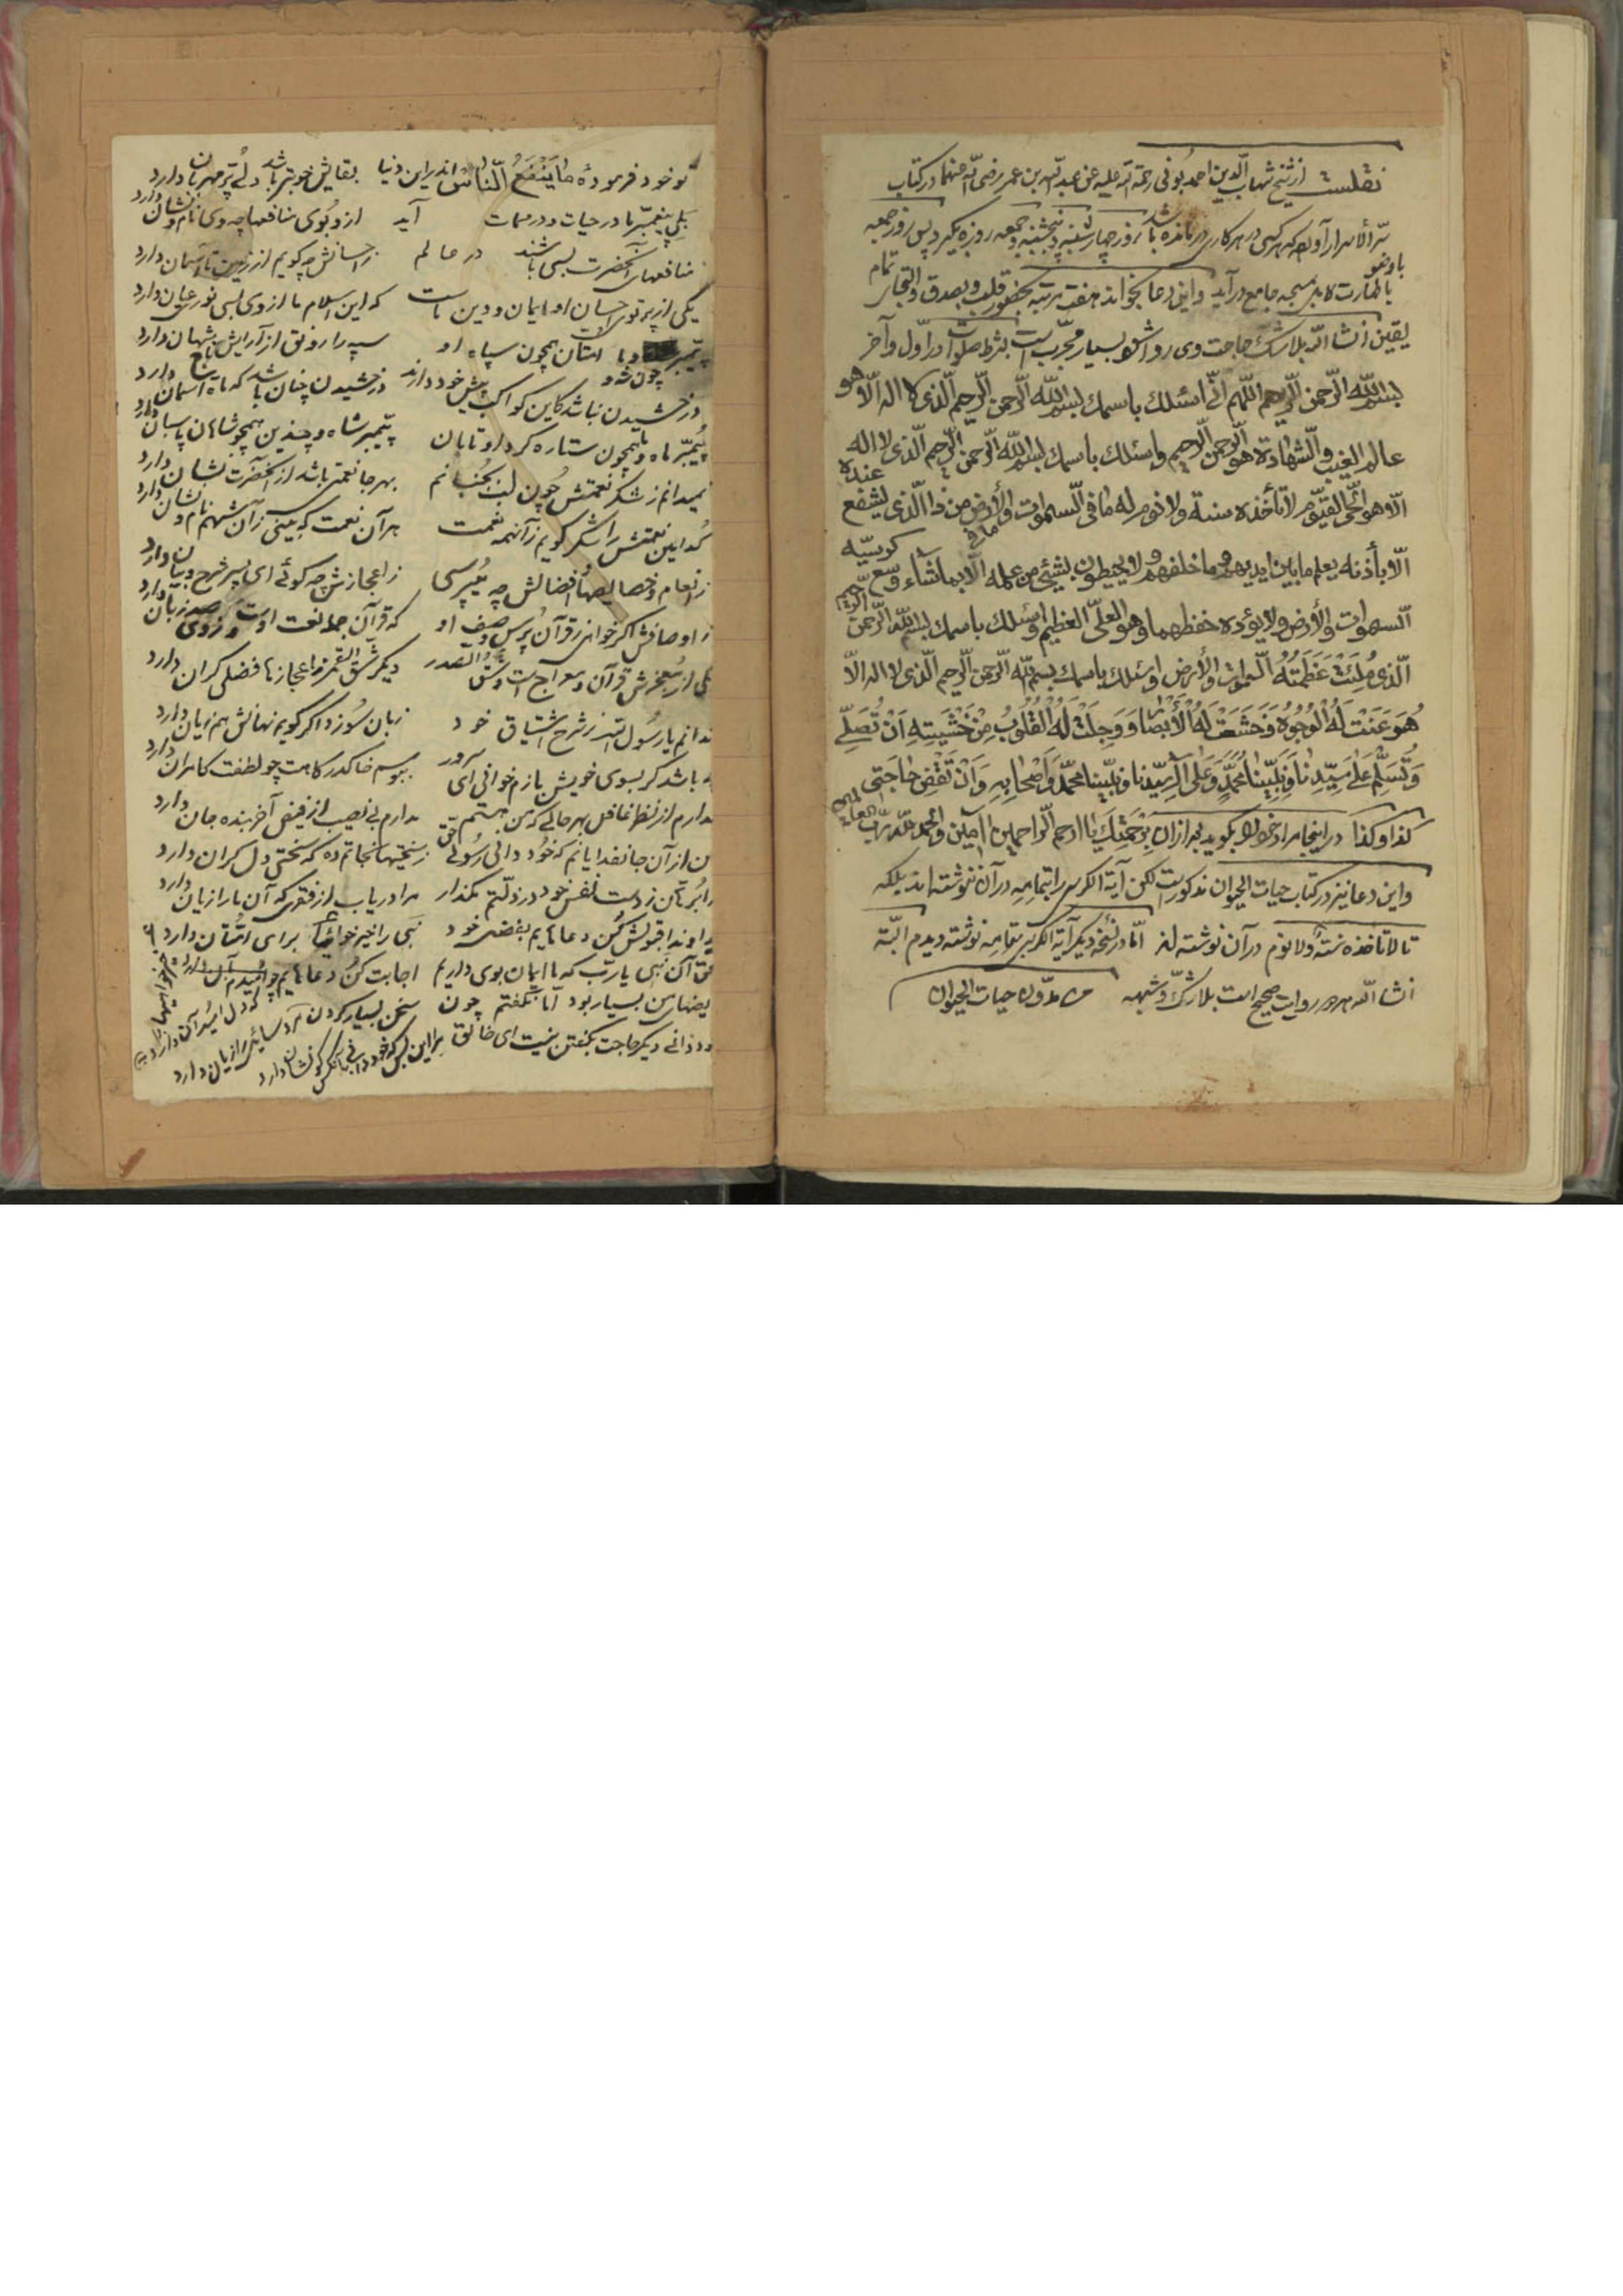 نقلست از شیخ شهاب الدین احمد بونی رحمة الله علیه عن عبد الله بن عمر رضی الله عنهما در کتاب
سر الأسرار آورده که هر کسی در هر کاری در مانده باشد روز چهارشنبه و پنجشنبه و جمعه روزه بگیرد پس روز جمعه
باوضو با طهارت کامل بمسجد جامع در آید و این دعا بخواند هفت مرتبه بحضور قلب و بصدق و التجای تمام
یقین انشا الله بلا شک حاجت وی روا شود بسیار مجرب است بشرط صلوات در اول و آخر
بسم الله الرحمن الرحیم اللهم انی اسئلک باسمک بسم الله الرحمن الرحیم الذی لا اله الا هو
عالم الغیب والشهادة هو الرحمن الرحیم واسئلک باسمک بسم الله الرحمن الرحیم الذی لا اله
الا هو الحی القیوم لا تأخذه سنة ولا نوم له ما فی السموات وما فی الأرض من ذا الذی یشفع عنده
الا بأذنه یعلم ما بین ایدیهم وما خلفهم ولا یحیطون بشیئ من علمه الا بما شاء وسع کرسیه
السموات والأرض ولا یؤده حفظهما وهو العلی العظیم واسئلک باسمک بسم الله الرحمن الرحیم
الذی مُلِئَتْ عَظَمَتُهُ السموات والأرض واسئلک باسمک بسم الله الرحمن الرحیم الذی لا اله الا
هُوَ عَنَتْ لَهُ الْوُجُوهُ وَخَشَعَتْ لَهُ الْأَبْصَارُ وَوَجِلَتْ لَهُ الْقُلُوبُ مِنْ خَشْیَتِهِ اَنْ تُصَلِّیَ
وَتُسَلِّمَ عَلیٰ سَیِّدِنَا وَنَبِیِّنَا مُحَمَّدٍ وَعَلیٰ آلِ سَیِّدِنَا وَنَبِیِّنَا مُحَمَّدٍ وَاَصْحَابِهِ وَاَنْ تَقْضِیَ حَاجَتِی
کذا وکذا در اینجا مراد خود بگوید بعد از آن بِرَحْمَتِكَ یا ارحم الراحمین آمین والحمد لله رب العالمین
و این دعا نیز در کتاب حیات الحیوان مذکورست لکن آیة الکرسی را بتمامه در آن ننوشته اند بلکه
تا لا تاخذه سنة ولا نوم در آن نوشته اند اما در نسخه دیگر آیة الکرسی بتمامه نوشته دیدم البته
انشا الله هر دو روایت صحیح است بلا شک و شبهه حیات الحیوان
تو خود فرمودهٔ ما یَنْفَعُ النّاسَ اندر این دنیا بقایش خوبتر باشد دلے پُر مهربان دارد
بلی پیغمبر ما در حیات و در ممات آید ازو بوی منافعها چه وی نام و نشان دارد
منافعهای آنحضرت بسی باشند در عالم ز احسانش چه گویم از زمین تا آسمان دارد
یکی از پرتوی احسان او ایمان و دین ماست که این اسلام ما از وی بسی نور عیان دارد
پیمبر چون شه و ما امتان همچون سپاه او سپه را رونق از آرایش شهان دارد
درخشیدن نباشد کاین کواکب پیش خود دارند درخشیدن چنان باشد که ماه آسمان دارد
پیمبر ماه و ما همچون ستاره گرد او تابان پیمبر شاه و چندین همچو شاهان پاسبان دارد
نمیدانم ز شکر نعمتش چون لب بجنبانم بهر جا نعمتی باشد از آنحضرت نشان دارد
کدامین نعمتش را شکر گویم زآنهمه نعمت هر آن نعمت که بینی زآن شهم نام و نشان دارد
ز انعام و خصایصها و فضایلش چه میپرسی ز اعجازش چه گوئے ای پسر شرح و بیان دارد
ز اوصافش اگر خواهی ز قرآن پرس وصف او که قرآن جمله نعت اوست
یکی از معجزش قرآن و معراج است و شق الصدر دیگر شق القمر ز اعجازها فضلی گران دارد
ندانم یا رسول الله ز شرح اشتیاق خود زبان سوزد اگر گویم نهانش هم زیان دارد
چه باشد گر بسوی خویش بازم خوانی ای سرور ببوسم خاک درگاهت چو لطفت کامران دارد
مدارم از نظر غافل بهر حالے که من هستم مدارم بی نصیب از فیض آخر بنده جان دارد
من از آن جا نفدایانم که خود دانی رسول حق ز سختیها نجاتم ده که سختی دل گران دارد
ز دست نفس خود در ذلتم مگذار مرا دریاب از فقری که آن ما را زیان دارد
خداوندا قبولش کن دعاهایم بفضل خود نبی را خیر خواهی‌ها برای امتان دارد
بحق آن نبی یا رب که ما ایمان بوی داریم اجابت کن دعاهایم چو امیدم
من بسیار بود اما نگفتم چون سخن بسیار کردن مر سائل را زیان دارد
تو دانی دیگر حاجت بگفتن نیست ای خالق بر این بس کن که خود دانی